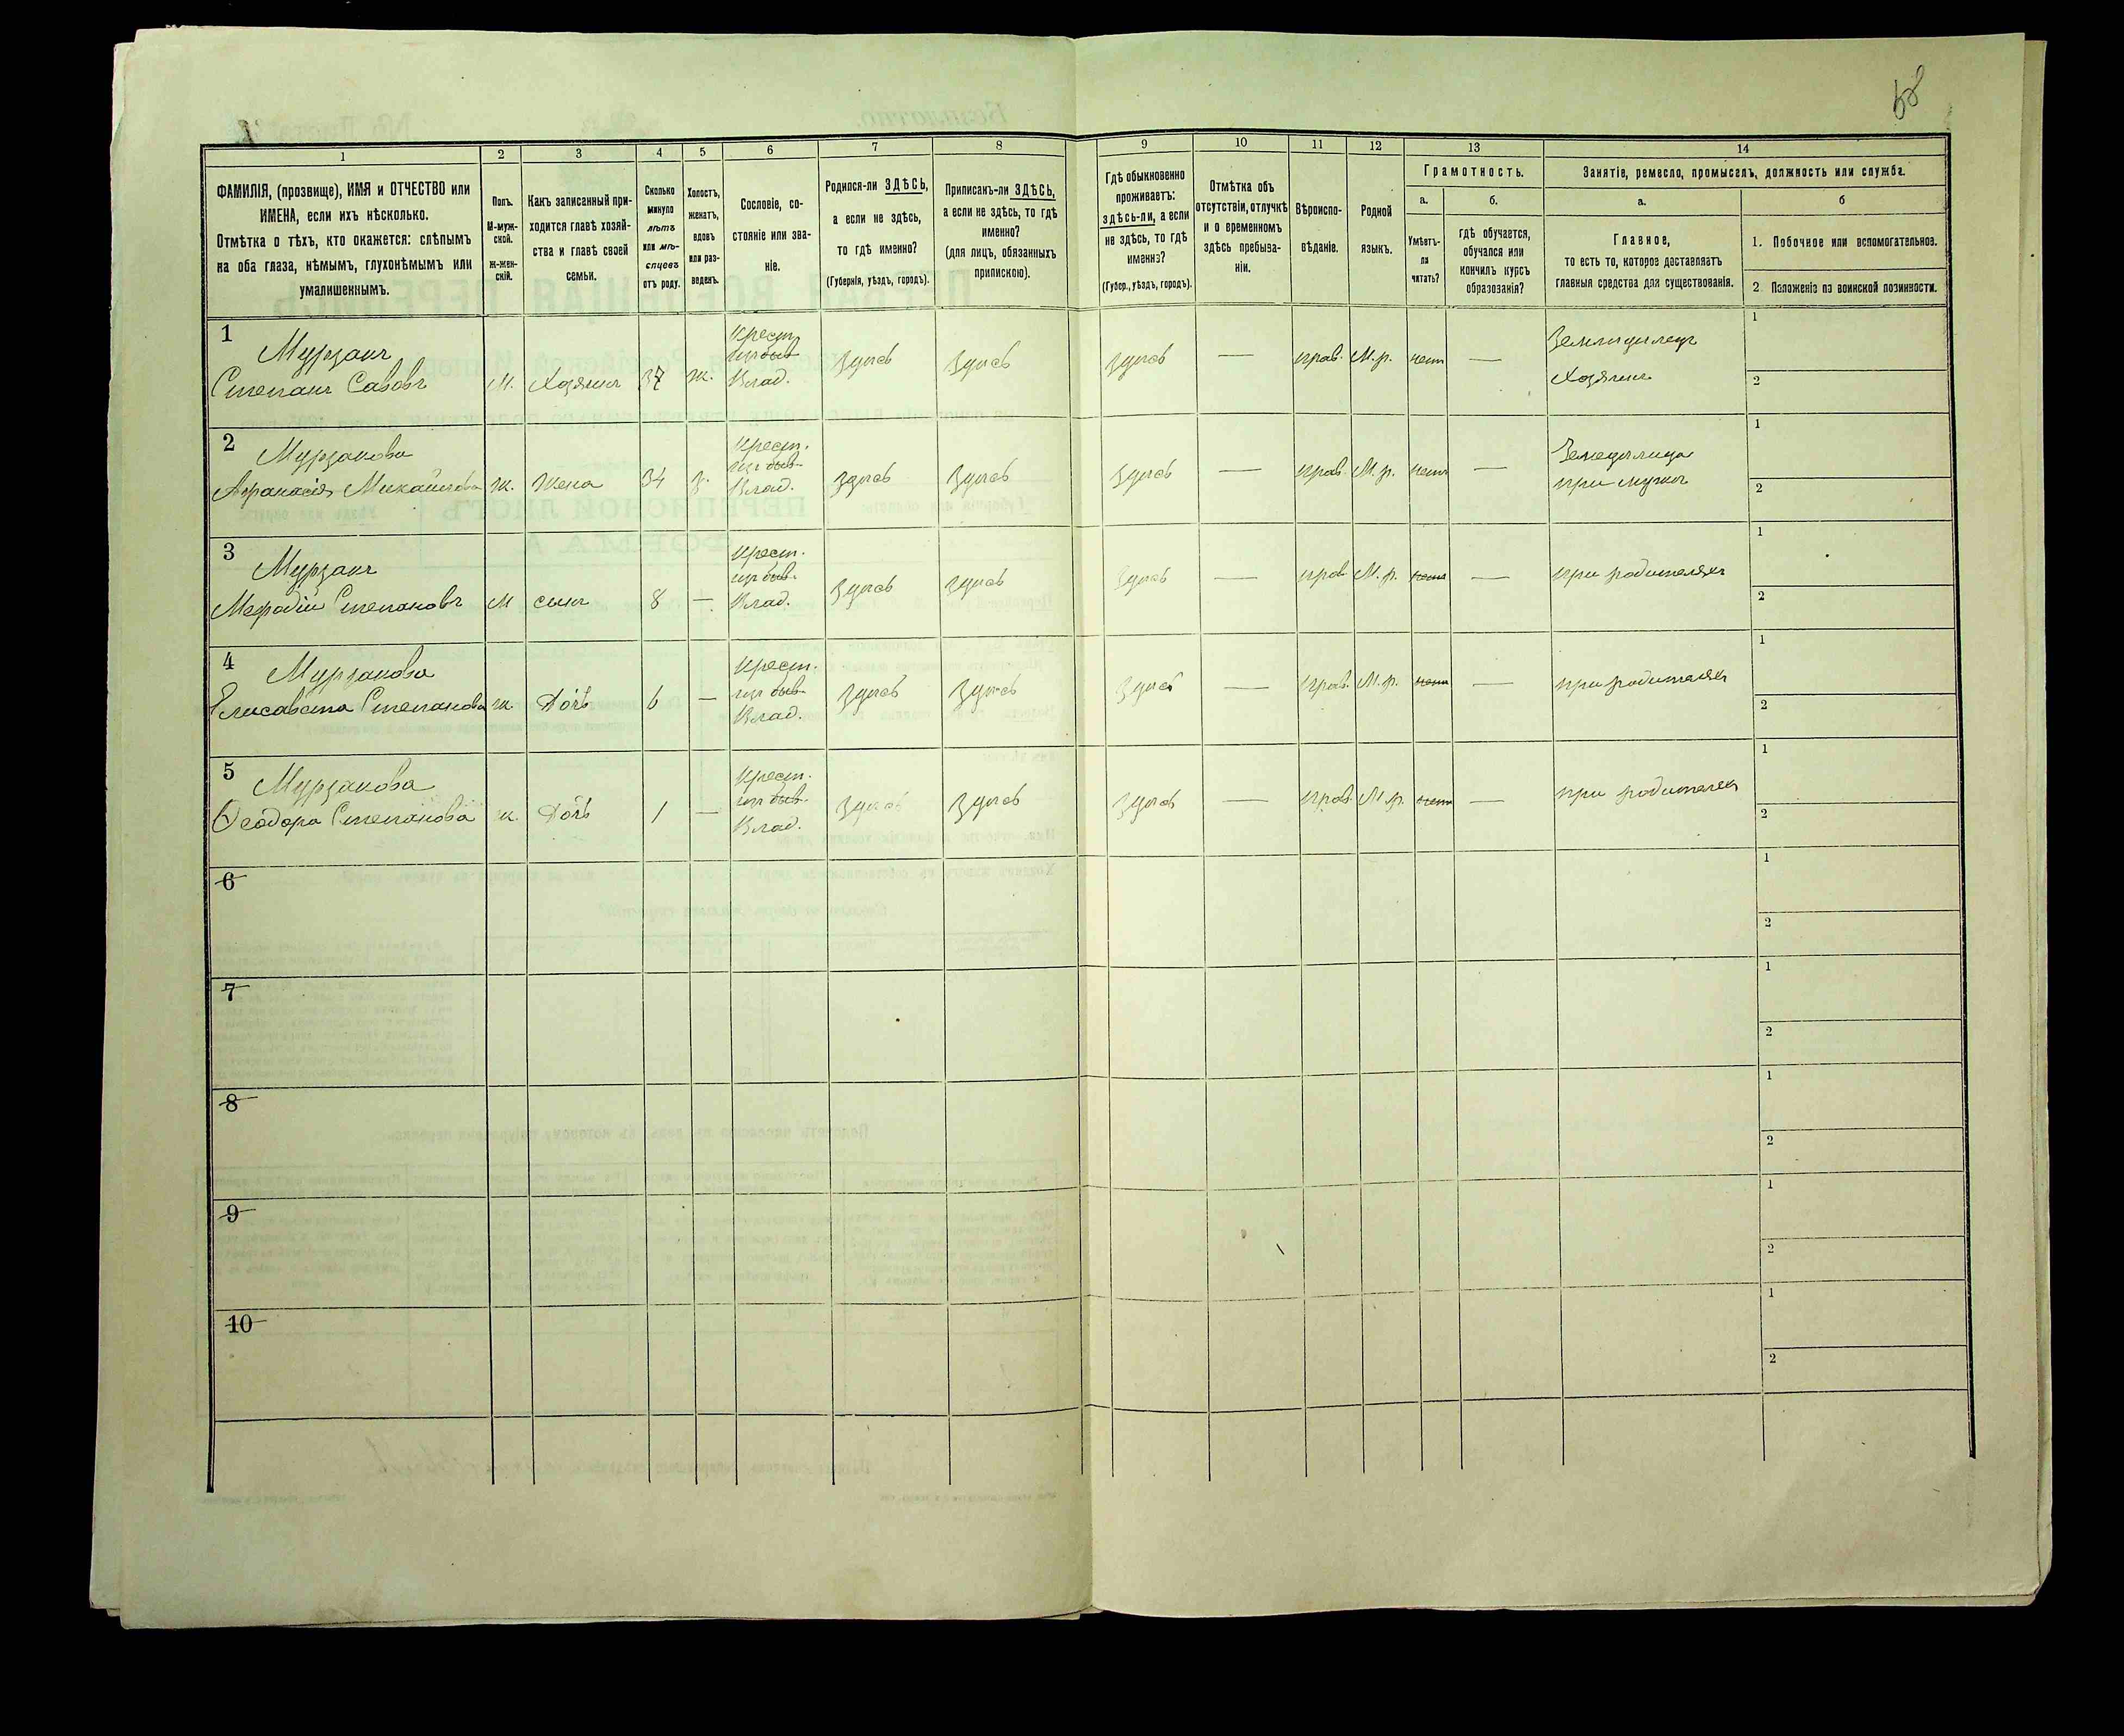 68
1
2
3
4
5
6
7
8
9
10
11
12
13
14
ФАМИЛІЯ, (прозвище), ИМЯ и ОТЧЕСТВО или
ИМЕНА, если ихъ нѣсколько.
Отмѣтка о тѣхъ, кто окажется: слѣпымъ
на оба глаза, нѣмымъ, глухонѣмымъ или
умалишеннымъ.
Полъ.
М-муж-
ской.
ж-жен-
скій.
Какъ записанный при-
ходится главѣ хозяй-
ства и главѣ своей
семьи.
Сколько
минуло
лѣтъ
или мѣ-
сяцевъ
отъ роду.
Холостъ,
женатъ,
вдовъ
или раз-
веденъ.
Сословіе, со-
стояніе или зва-
ніе.
Родился-ли ЗДѢСЬ,
а если не здѣсь,
то гдѣ именно?
(Губернія, уѣздъ, городъ).
Приписанъ-ли ЗДѢСЬ,
а если не здѣсь, то гдѣ
именно?
(для лицъ, обязанныхъ
припискою).
Гдѣ обыкновенно
проживаетъ:
здѣсь-ли, а если
не здѣсь, то гдѣ
именно?
(Губер., уѣздъ, городъ).
Отмѣтка объ
отсутствіи, отлучкѣ
и о временномъ
здѣсь пребыва-
ніи.
Вѣроиспо-
вѣданіе.
Родной
языкъ.
Грамотность.
а.
Умѣетъ-
ли
читать?
б.
гдѣ обучается,
обучался или
кончилъ курсъ
образованія?
Занятіе, ремесло, промыселъ, должность или служба.
а.
Главное,
то есть то, которое доставляетъ
главныя средства для существованія.
б
1. Побочное или вспомогательное.
2. Положеніе по воинской повинности.
1
Мурзакъ
Степанъ Савовъ
М. Хозяинъ 37 ж.
Крест.
изъ быв.
Влад.
Здѣсь Здѣсь Здѣсь — прав. М. р. нетъ —
Земледѣлецъ
Хозяинъ
1
2
2
Мурзакова
Афанасія Михайлова
ж. Жена 34 з.
Крест.
изъ быв.
Влад.
Здѣсь Здѣсь Здѣсь — прав. М. р. нетъ —
при мужѣ
1
2
3
Мурзакъ
Мефодій Степановъ
М сынъ 8 —
Крест.
изъ быв.
Влад.
Здѣсь Здѣсь Здѣсь — прав. М. р. нетъ —
при родителяхъ
1
2
4
Мурзакова
Елисавета Степанова
ж. Дочь 6 —
Крест.
изъ быв.
Влад.
Здѣсь Здѣсь Здѣсь — прав. М. р. нетъ —
при родителяхъ
1
2
5
Мурзакова
Ѳеодора Степанова
ж. Дочь 1 —
Крест.
изъ быв.
Влад.
Здѣсь Здѣсь Здѣсь — прав. М. р. нетъ —
при родителяхъ
1
2
6
1
2
7
1
2
8
1
2
9
1
2
10
1
2